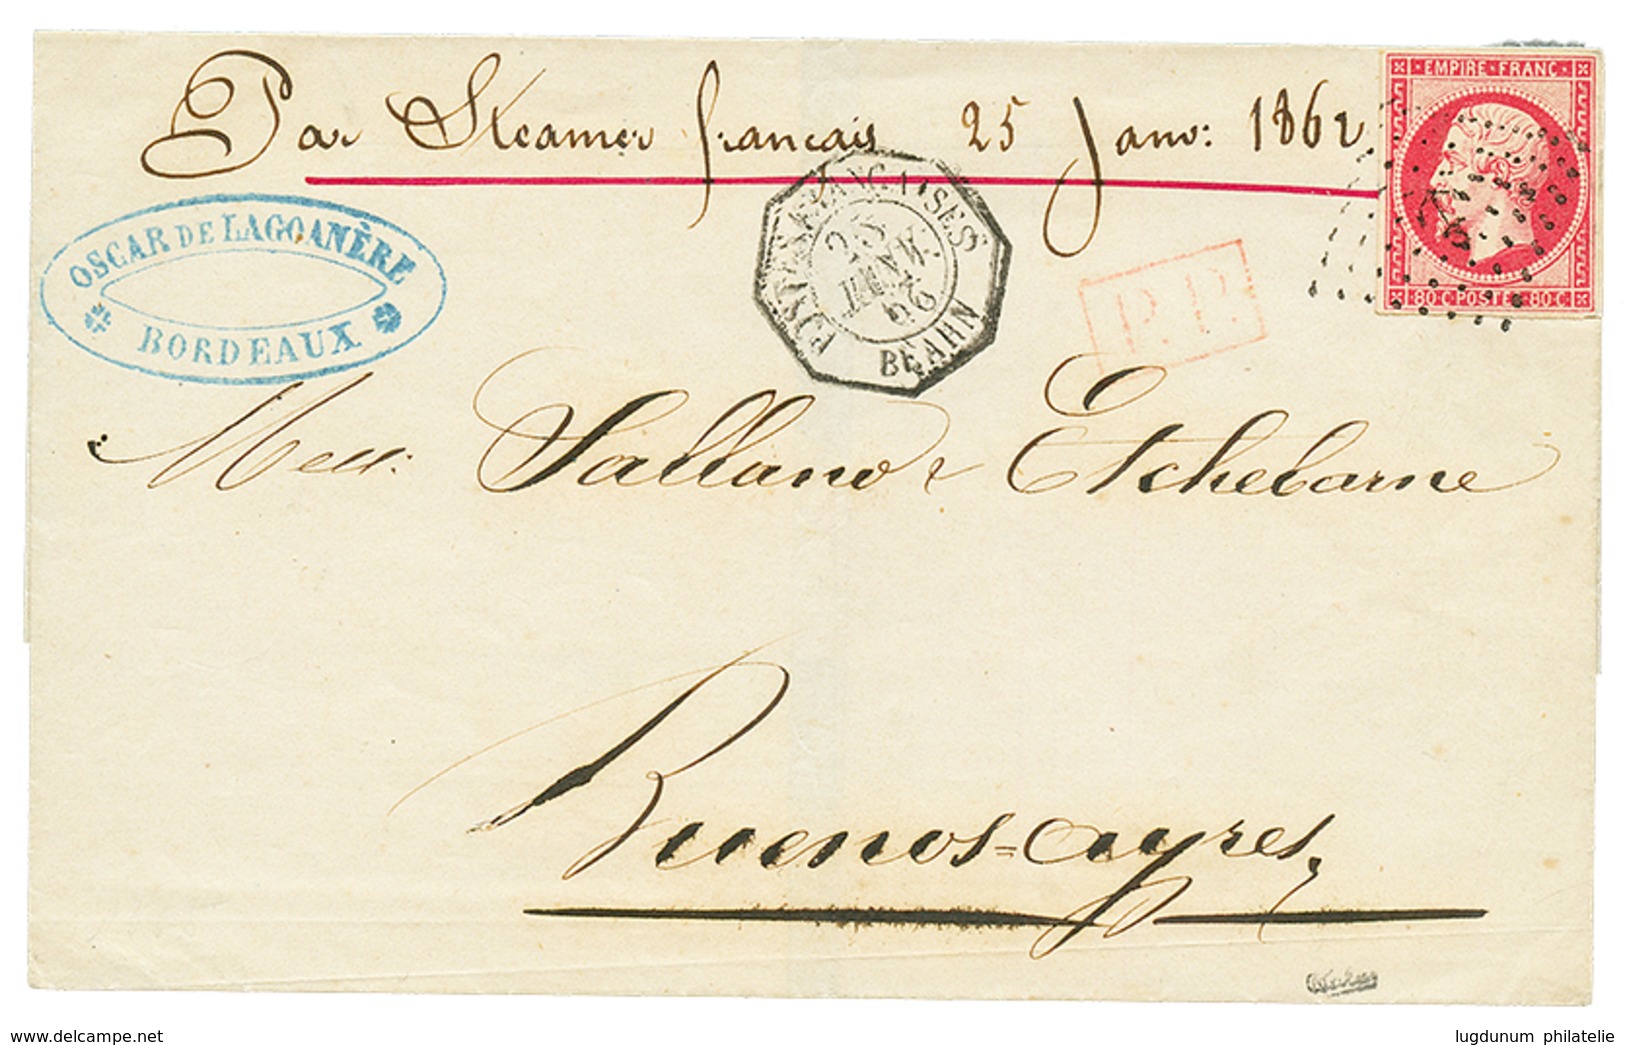 Par Steamer français 25 Janv: 1862
EMPIRE FRANC
80 C POSTES 80 C
OSCAR DE LAGOANÈRE
BORDEAUX
POSTES FRANÇAISES
25
JANVIER
62
BÉARN
P.P.
Mess: Sallano & Etchebarne
Buenos=ayres
www.delcampe.net
lugdunum philatelie